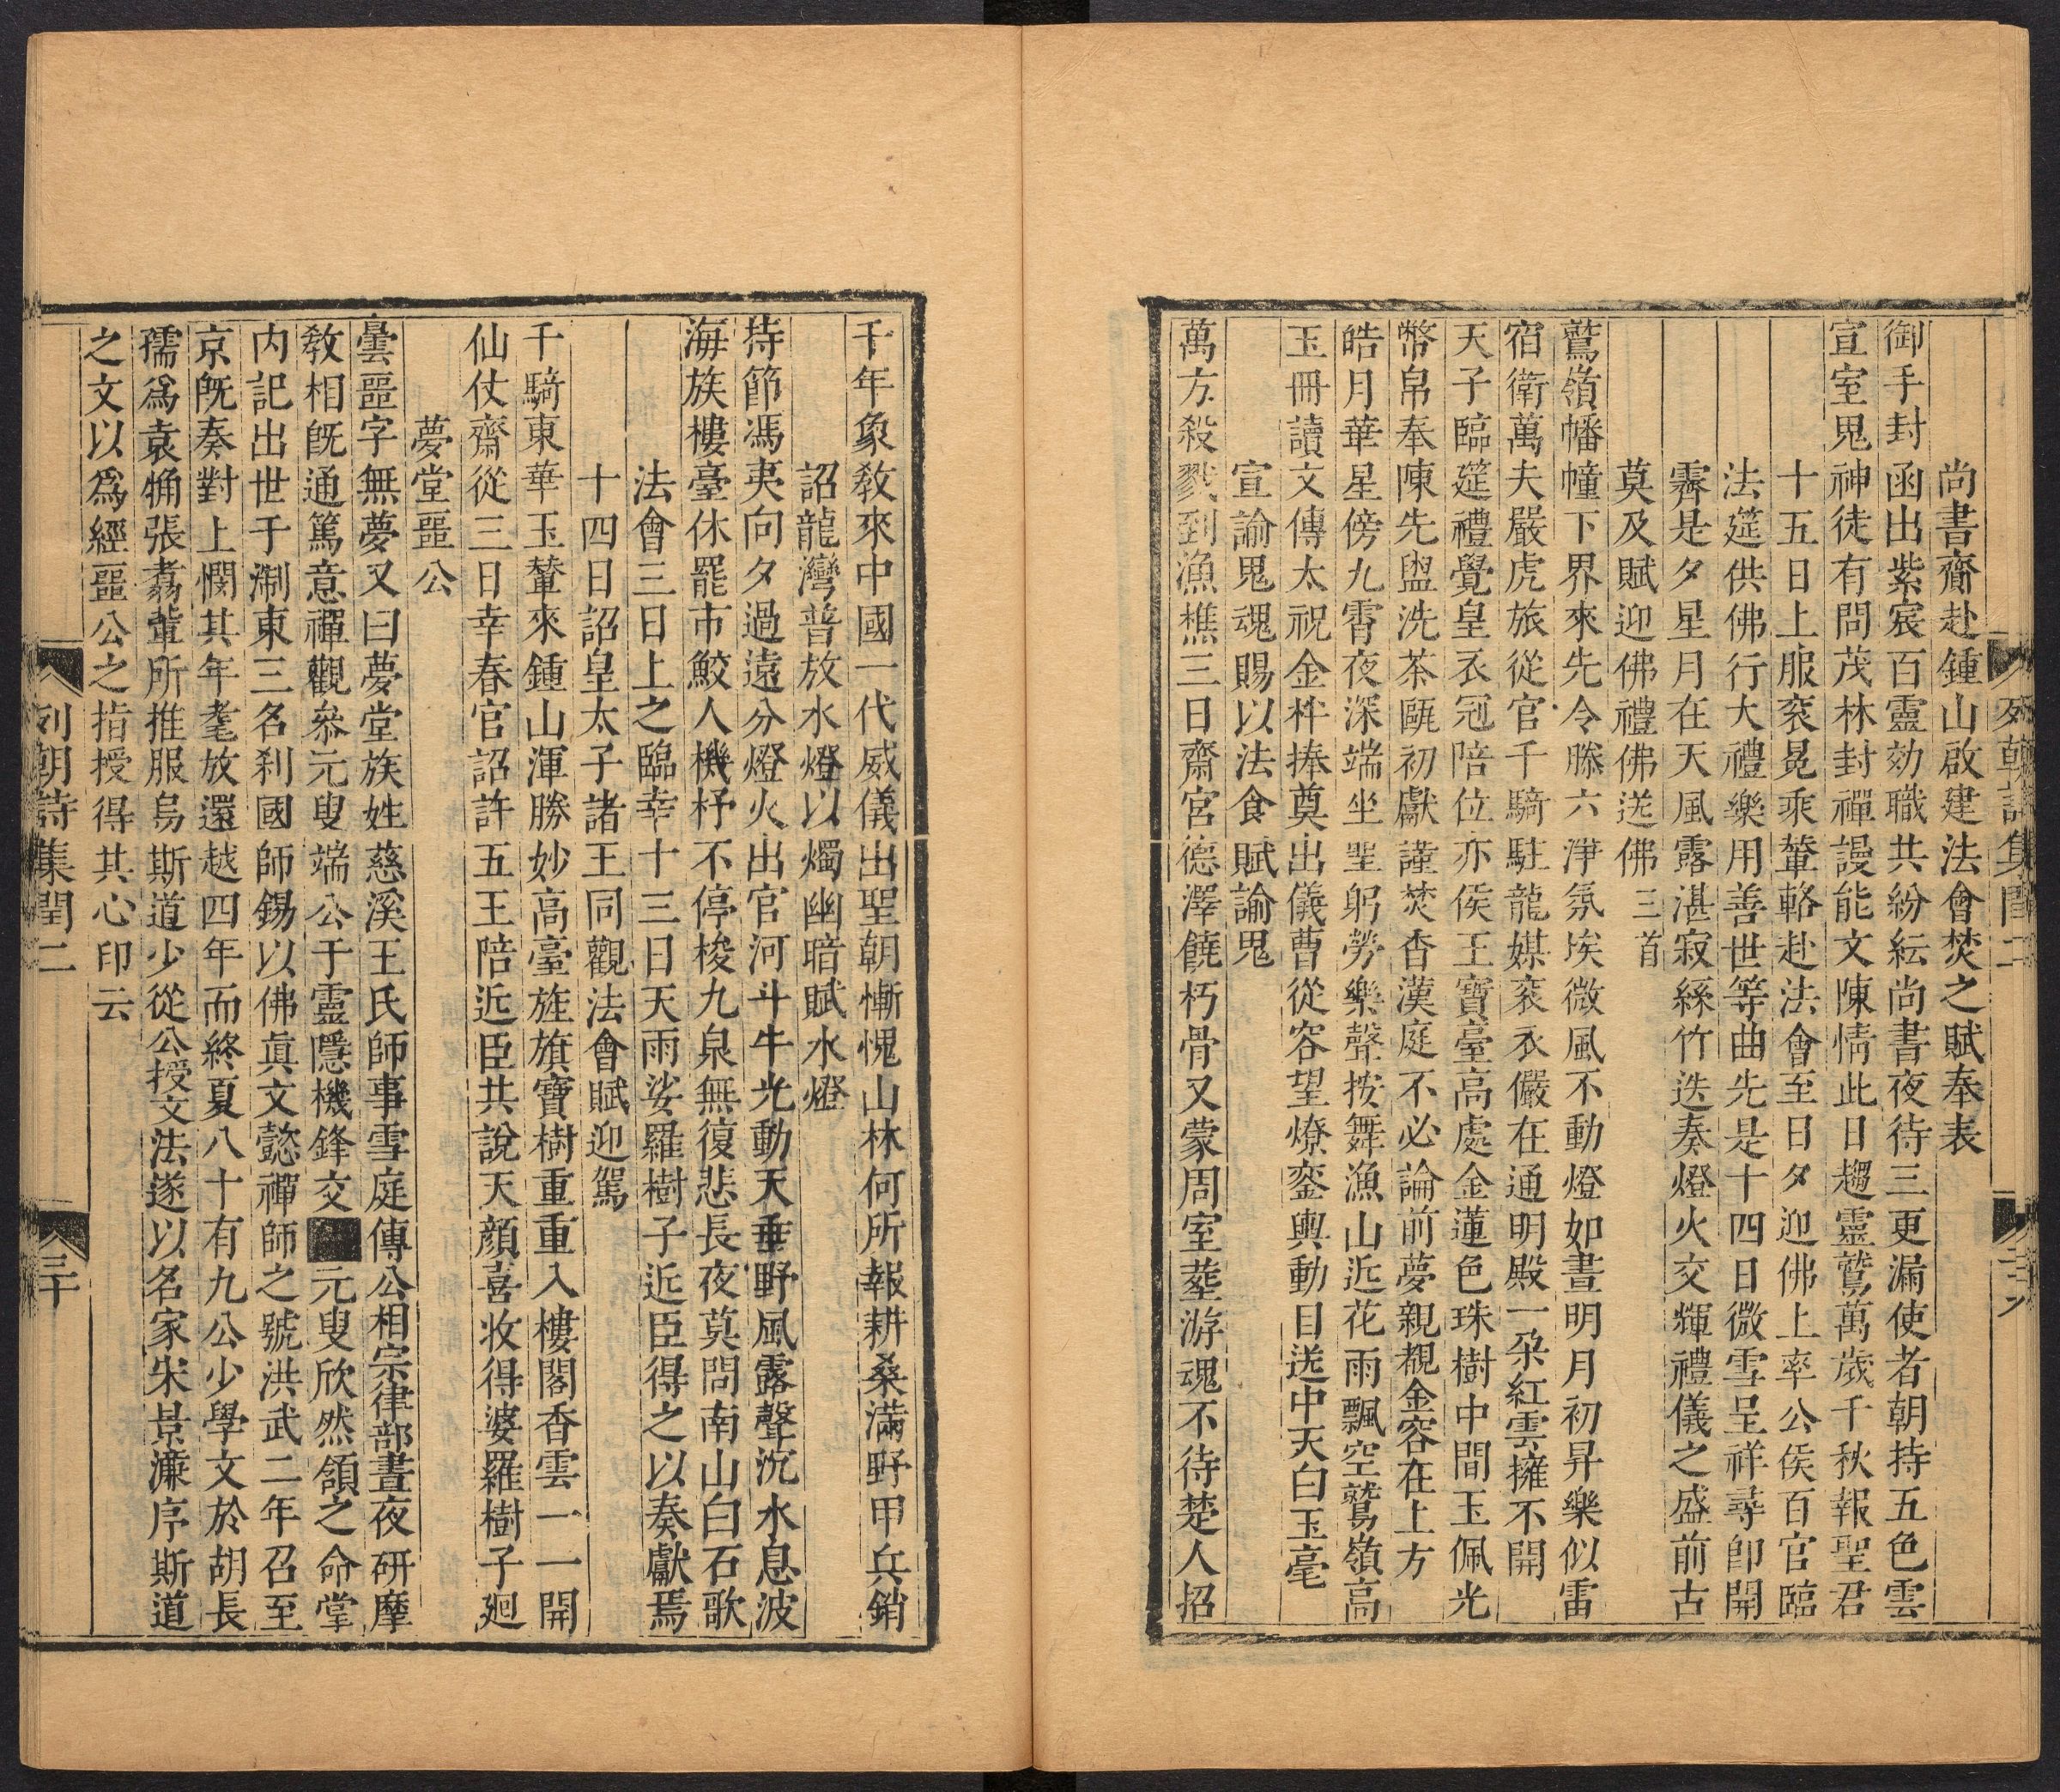 列朝詩集閏二
尚書齋赴鍾山啟建法會焚之賦奉表
御手封函出紫宸百靈効職共紛紜尚書夜待三更漏使者朝持五色雲
宣室鬼神徒有問茂林封禪謾能文陳情此日趨靈鷲萬歲千秋報聖君
十五日上服衮冕乘輦輅赴法會至日夕迎佛上率公侯百官臨
法筵供佛行大禮樂用善世等曲先是十四日微雪呈祥尋卽開
霽是夕星月在天風露湛寂絲竹迭奏燈火交輝禮儀之盛前古
莫及賦迎佛禮佛送佛三首
鷲嶺幡幢下界來先令滕六淨氛埃微風不動燈如晝明月初昇樂似雷
宿衛萬夫嚴虎旅從官千騎駐龍媒衮衣儼在通明殿一朶紅雲擁不開
天子臨筵禮覺皇衣冠陪位亦侯王寶臺高處金蓮色珠樹中間玉佩光
幣帛奉陳先盥洗茶甌初獻謹焚香漢庭不必論前夢親覩金容在上方
皓月華星傍九霄夜深端坐聖躬勞樂聲按舞漁山近花雨飄空鷲嶺高
玉冊讀文傳太祝金柈捧奠出儀曹從容望燎鑾輿動目送中天白玉毫
宣諭鬼魂賜以法食賦諭鬼
萬方殺戮到漁樵三日齋宮德澤饒朽骨又蒙周室葬游魂不待楚人招
千年象敎來中國一代威儀出聖朝慚愧山林何所報耕桑滿野甲兵銷
詔龍灣普放水燈以燭幽暗賦水燈
持節馮夷向夕過遠分燈火出官河斗牛光動天垂野風露聲沉水息波
海族樓臺休罷市鮫人機杼不停梭九泉無復悲長夜莫問南山白石歌
法會三日上之臨幸十三日天雨娑羅樹子近臣得之以奏獻焉
十四日詔皇太子諸王同觀法會賦迎駕
千騎東華玉輦來鍾山渾勝妙高臺旌旗寶樹重重入樓閣香雲一一開
仙仗齋從三日幸春官詔許五王陪近臣共說天顏喜收得婆羅樹子廻
夢堂噩公
曇噩字無夢又曰夢堂族姓慈溪王氏師事雪庭傳公相宗律部晝夜研摩
敎相旣通篤意禪觀叅元叟端公于靈隱機鋒交元叟欣然頷之命掌
内記出世于淛東三名刹國師錫以佛眞文懿禪師之號洪武二年召至
京旣奏對上憫其年耄放還越四年而終夏八十有九公少學文於胡長
孺爲袁桷張翥輩所推服烏斯道少從公授文法遂以名家宋景濂序斯道
之文以爲經噩公之指授得其心印云
列朝詩集閏二
三十